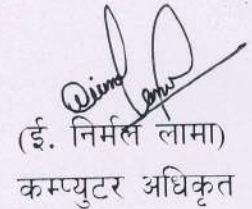 (ई. निर्मल लामा)
कम्प्युटर अधिकृत